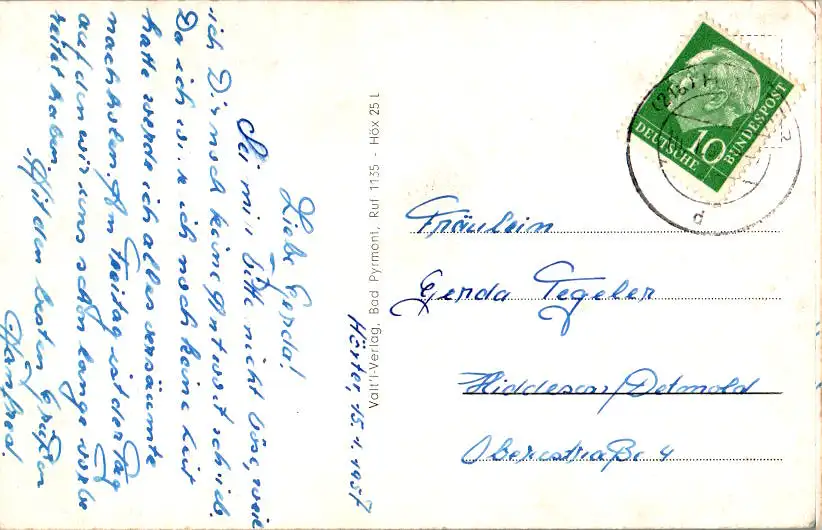 Höxter, 15.1.1957
Liebe Gerda!
Sei mir bitte nicht böse, weil
ich Dir noch keine Antwort schrieb.
Da ich bis noch keine Zeit
hatte werde ich alles versäumte
nachholen. Am Freitag ist der Tag
auf den wir uns schon lange vorbe
reitet haben.
Mit den besten Grüßen
Manfred.
Valt'l-Verlag, Bad Pyrmont, Ruf 1135 - Höx 25 L
DEUTSCHE
10
BUNDESPOST
d
Fräulein
Gerda Tegeler
Hiddesen/Detmold
Oberestraße 4